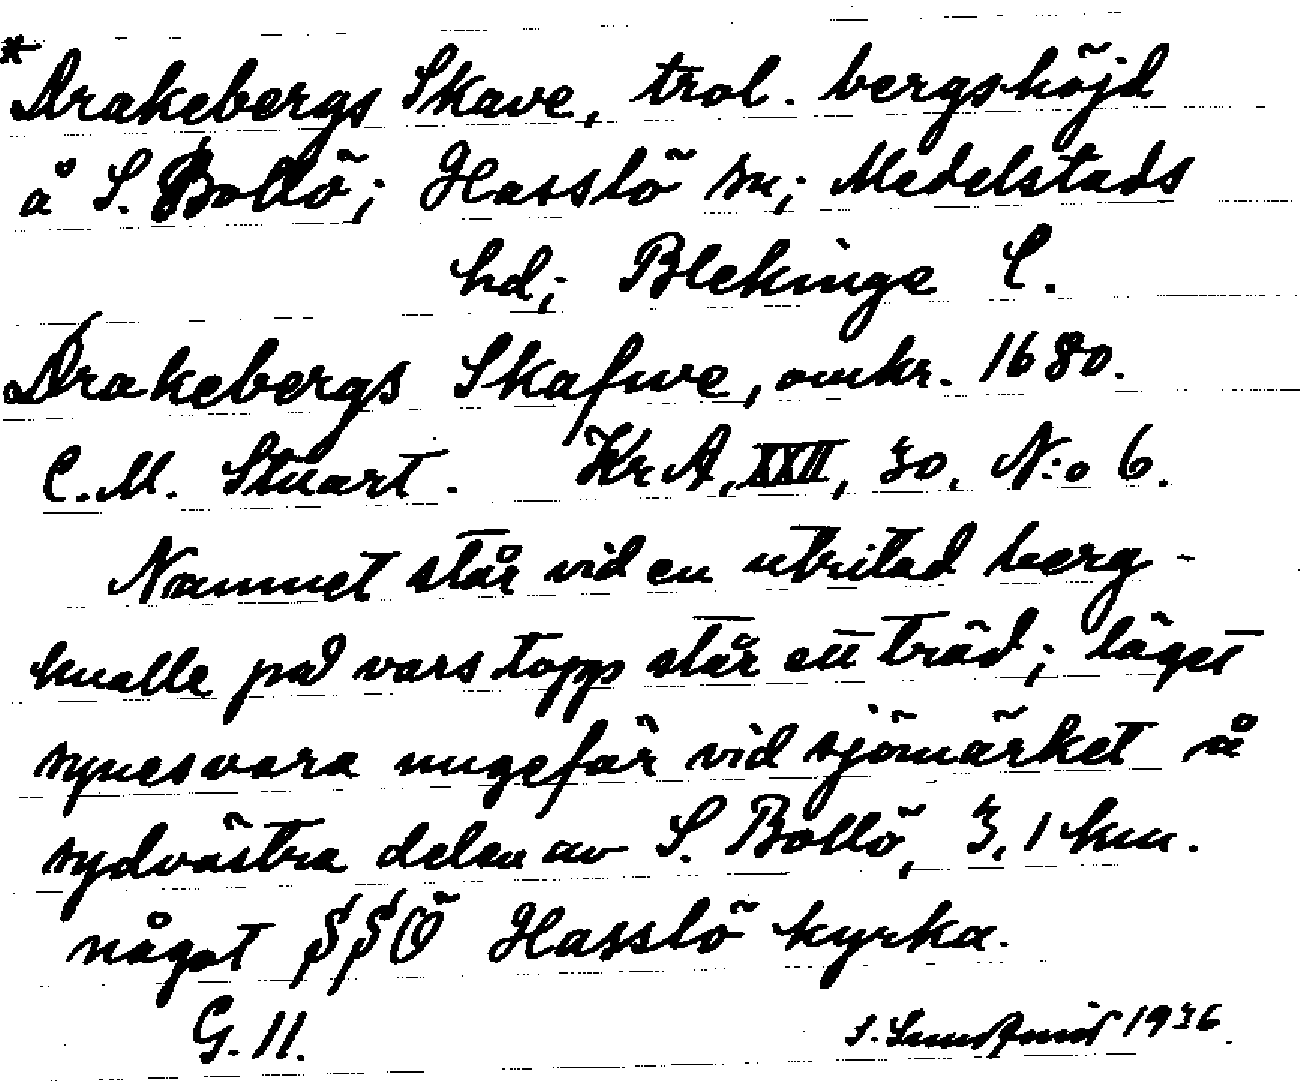 *Drakebergs Skave, trol. bergshöjd
å S. Bollö; Hasslö sn; Medelstads
hd; Blekinge l.
Drakebergs Skafwe, omkr. 1680.
C. M. Stuart. KrA, XXII, 30, N:o 6.
Namnet står vid en utritad berg-
knalle på vars topp står ett träd; läget
synes vara ungefär vid sjömärket å
sydvästra delen av S. Bollö, 3,1 km.
något SSÖ Hasslö kyrka.
G. 11.
1936.